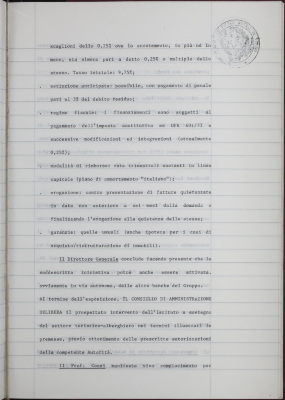 scaglioni dello 0,25% ove lo scostamento, in più od in
meno, sia almeno pari a detto 0,25% o multiplo dello
stesso. Tasso iniziale: 9,75%;
. estinzione anticipata: possibile, con pagamento di penale
pari al 2% del debito residuo;
. regime fiscale: i finanziamenti sono soggetti al
pagamento dell'imposta sostitutiva ex DPR 601/73 e
successive modificazioni ed integrazioni (attualmente
0,25%);
. modalità di rimborso: rate trimestrali costanti in linea
capitale (piano di ammortamento "italiano");
. erogazione: contro presentazione di fatture quietanzate
in data non anteriore a sei mesi dalla domanda o
finalizzando l'erogazione alla quietanza delle stesse;
. garanzie: quelle usuali (anche ipoteca per i casi di
acquisto/ristrutturazione di immobili).
Il Direttore Generale conclude facendo presente che la
suddescritta iniziativa potrà anche essere attivata,
ovviamente in via autonoma, dalle altre banche del Gruppo.
Al termine dell'esposizione, IL CONSIGLIO DI AMMINISTRAZIONE
DELIBERA il prospettato intervento dell'Istituto a sostegno
del settore turistico-alberghiero nei termini illustrati in
premessa, previo ottenimento delle prescritte autorizzazioni
dalle competenti Autorità.
Il Prof. manifesta vivo compiacimento per